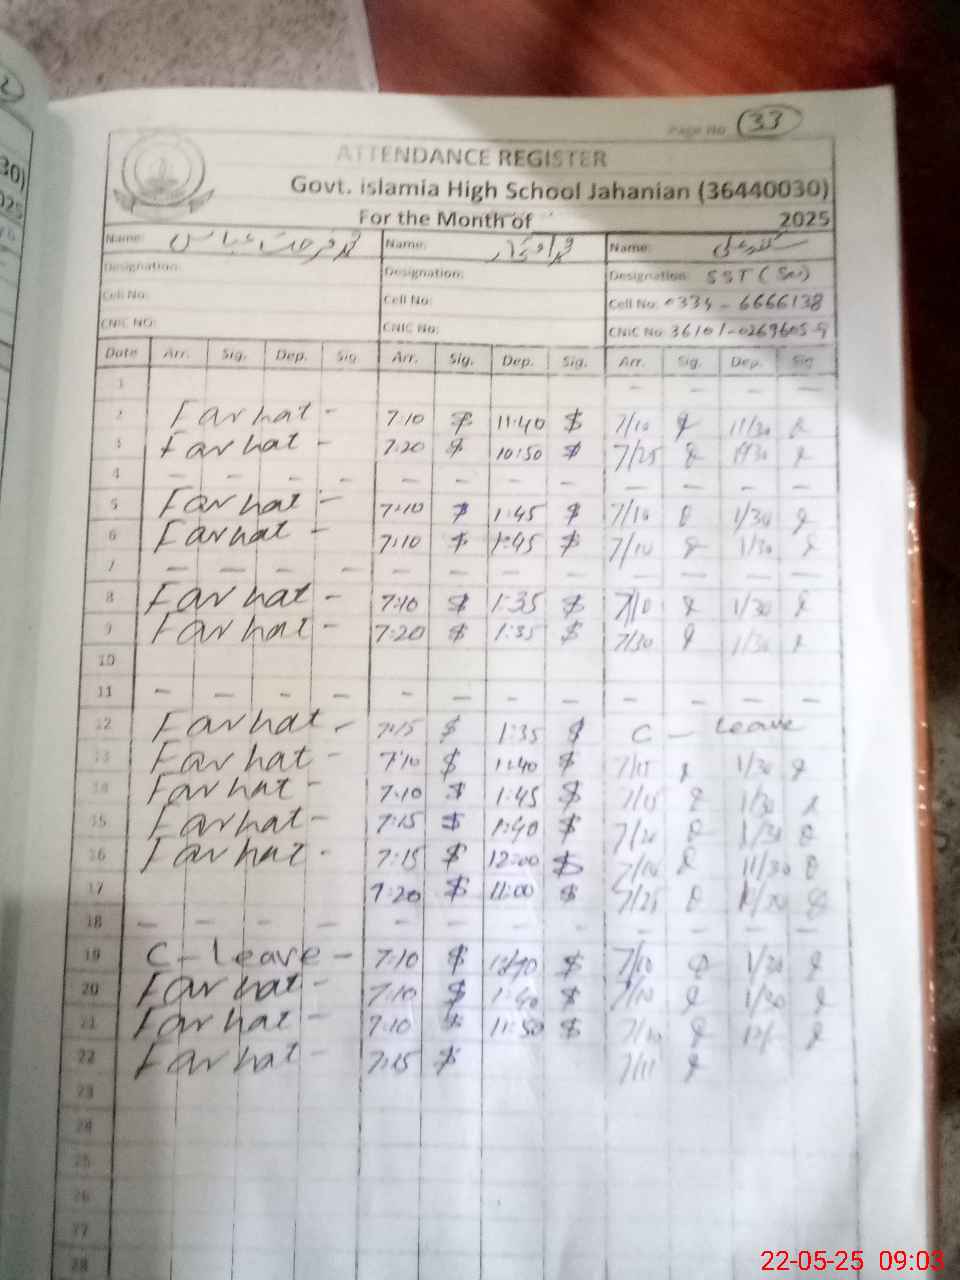 Page No. 33
ATTENDANCE REGISTER
Govt. islamia High School Jahanian (36440030)
For the Month of 2025
Name: محمد فرحت عباس Name: Name: سکندر علی
Designation: Designation: Designation: SST (Sci)
Cell No: Cell No: Cell No: 0334-6666138
CNIC NO: CNIC No: CNIC No: 36101-0269605-9
Date Arr. Sig. Dep. Sig. Arr. Sig. Dep. Sig. Arr. Sig. Dep. Sig
1 - - - -
2 Farhat - 7:10 $ 11:40 $ 7/10 11/30
3 Farhat - 7:20 $ 10:50 $ 7/25
4 - - - - - - - - - - - -
5 Farhat - 7:10 $ 1:45 $ 7/10 1/30
6 Farhat - 7:10 $ 1:45 $ 7/10 1/30
7 - - - - - - - - - - - -
8 Farhat - 7:10 $ 1:35 $ 7/10 1/30
9 Farhat - 7:20 $ 1:35 $ 7/30 1/30
10
11 - - - - - - - - - - - -
12 Farhat - 7:15 $ 1:35 $ C - Leave
13 Farhat - 7:10 $ 1:40 $ 7/15 1/30
14 Farhat - 7:10 $ 1:45 $ 7/15 1/30
15 Farhat - 7:15 $ 1:40 $ 7/20 1/30
16 Farhat - 7:15 $ 12:00 $ 7/10 11/30
17 7:20 $ 11:00 $ 7/25
18 - - - - - - - - - - - -
19 C - Leave - 7:10 $ $ 7/10 1/30
20 Farhat - 7:10 $ 1:40 $ 7/10 1/30
21 Farhat - 7:10 $ 11:50 $ 7/10 12/-
22 Farhat - 7:15 $
23
24
25
26
27
28
22-05-25 09:03